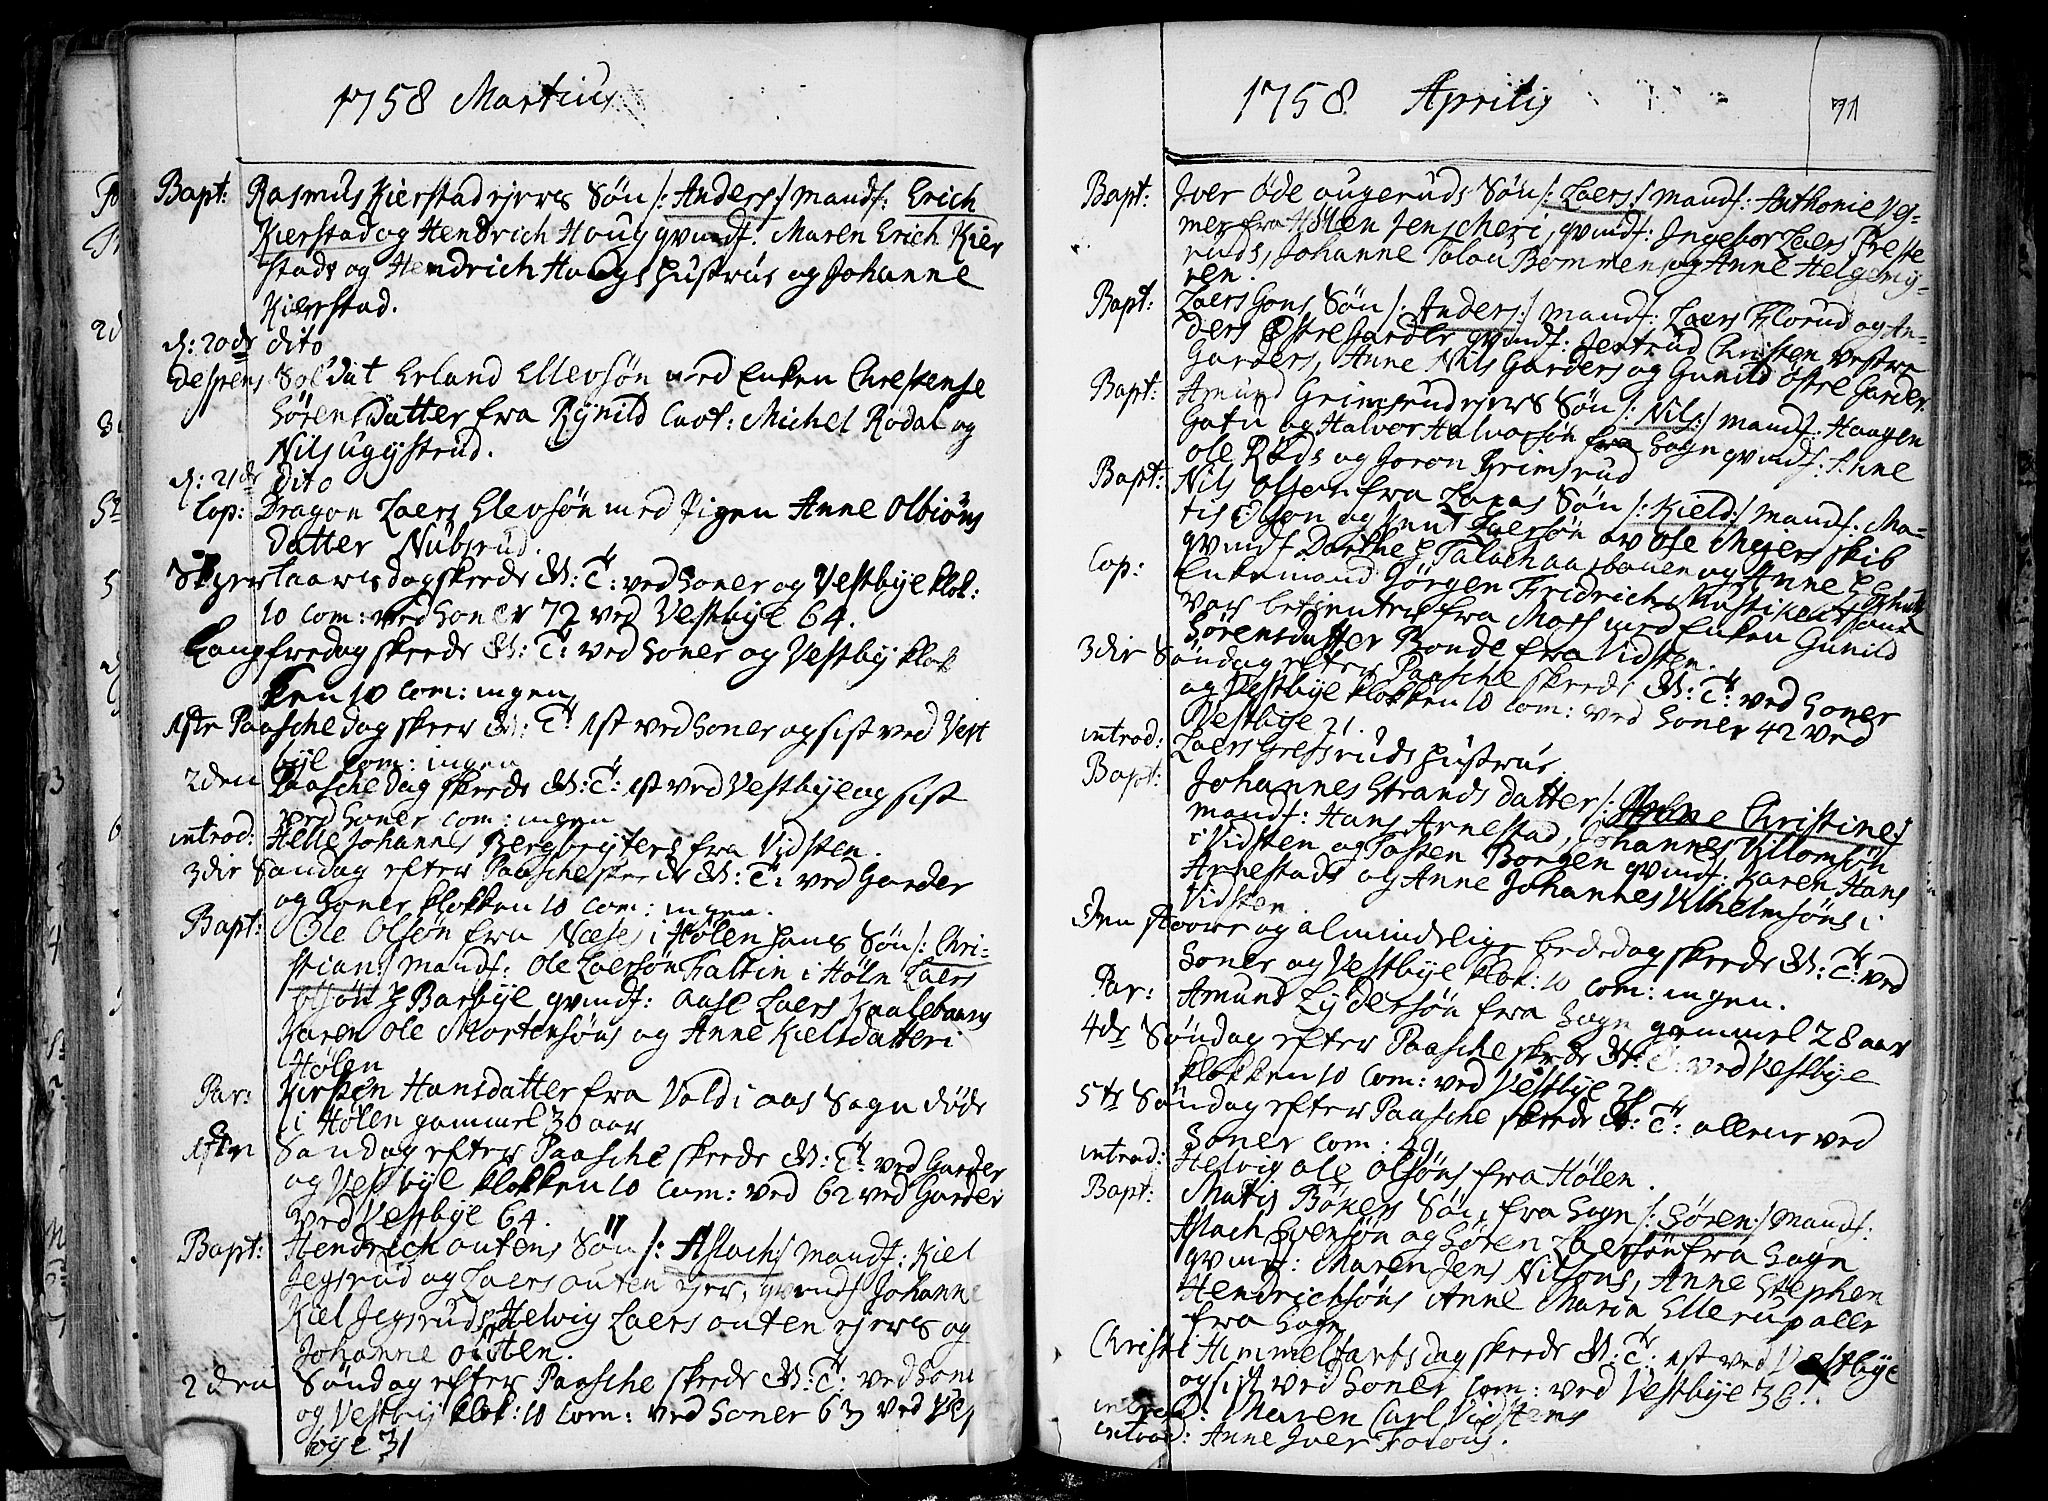 1758 Martius
Bapt: Rasmus Kierstad ejeres Søn /: Anders :/ mandf: Erich
Kierstad og Hendrich Houg qvindf: Maren Erich Kier
stads og Hendrich Hougs Hustrue og Johanne
Kierstad.
d: 20de dito
Despens Soldat Erland Ellevsøn med Enken Chrestense
Sørens Datter fra Rynild Cavt: Michel Rødal og
Nils ugystrud.
d: 21de dito
Cop: Dragon Laers Elevsøn med Pigen Anne Olbiøns
datter Nubsrud.
Skjertaarsdag skeede G: T: ved Soner og Vestbye klok:
10 com: ved Soner 72 ved Vestbye 64.
Langfredag skeede G: T: ved Soner og Vestby klok
ken 10 com: ingen
1ste Paaschedag skeer G: T: 1st ved Soner og sist ved Vest
bye com: ingen
2den Paaschedag skeede G: T: 1st ved Vestbye og sist
ved Soner com: ingen
introd: Helle Johannes Bergbryters fra Vidsten.
3die Søndag efter Paasche skeede G: T: ved Garder
og Soner klokken 10 com: ingen.
Bapt: Ole Olsøn fra Næse i Hølen hans Søn /: Chri-
stian :/ mandf: Ole Laersøn Faltin i Høln Laers
Olsøn Barbye qvindf: Aase Laers Kaalebaans
Karen Ole Mortensøns og Anne Kielsdatter i
Hølen
Par: Kirsten Hansdatter fra Vold i aas Sogn døde
i Hølen gammel 30 aar
1sten Søndag efter Paasche skeede G: T: ved Garder
og Vestbye klokken 10 com: ved 62 ved Garder
ved Vestbye 64.
Bapt: Hendrich outens Søn /: Aslach :/ mandf: Kiel
Jegsrud og Laers outen ejer, qvindf Johanne
Kiel Jegsruds Helvig Laers outen ejeres og
Johanne outen.
2den Søndag efter Paasche skeede G: T: ved Soner
og Vestby klok: 10 com: ved Soner 63 ved Vest
bye 31
1758 Aprilis
71
Bapt: Iver Øde ougeruds Søn /: Laers :/ mandf: Anthonie Ves-
mer fra Hølen Jens cheri, qvindf: Ingebor Laers Preste
ruds, Johanne Bommen og Anne Helgemy-
ren.
Bapt: Laers Søn /: Anders :/ mandf: Laers Florud og An-
ders Østre Garder qvindf: Jertrud Christen Vestre
Garders, Anne Nils Garders og Gunild østre Garder.
Bapt: Amund Grimsrud ejeres Søn /: Nils :/ mandf: Haagen
Gatu og Halvor Halvorsøn fra Sogn qvindf: Anne
Ole Røds og Joron Grimsrud
Bapt: Nils Olsen fra Søn /: Kield :/ mandf: Ma-
tis Olson og Knut Laersøn av Ole Mejers skib
qvindf Dorthe og Anne
Cop: Enkemand Jørgen Fridrich
betjenter fra Moss med Enken Gunild
Sørensdatter Bonde fra Vidsten.
3die Søndag efter Paasche skeede G: T: ved Soner
og Vestbye klokken 10 com: ved Soner 42 ved
Vestbye 21.
introd: Laers Gresruds Hustrue
Bapt: Johannes Strands datter /: Anne Christine :/
mandf: Hans Arnestad, Johannes Villomsøn
i Vidsten og Tosten Borgen qvindf: Karen Hans
Arnestads og Anne Johannes Vilhelmsøns i
Vidsten.
Den stoore og almindelige bededag skeede G: T: ved
Soner og Vestbye klok: 10 com: ingen.
Par: Amund Lydersøn fra Sogn gammel 28 aar
4de Søndag efter Paasche skeede G: T: ved Vestbye
klokken 10 com: ved Vestbye
5te Søndag efter Paasche skeede G: T: allene ved
Soner com: 29
introd: Helvig Ole Olsøns fra Hølen.
Bapt: Matis Bøners Søn fra Sogn /: Søren :/ mandf:
Aslach Evensøn og Søren Laersøn fra Sogn
qvindf: Maren Jens Nilsøns, Anne Stephen
Hendrichsøns Anne Maria Ellerup alle
fra Sogn
Christi Himmelfartsdag skeede G: T: 1st ved Vestbye
og sist ved Soner com: ved Vestbye 36.
introd: Maren Carl Vidstens
introd: Anne Iver Foious.